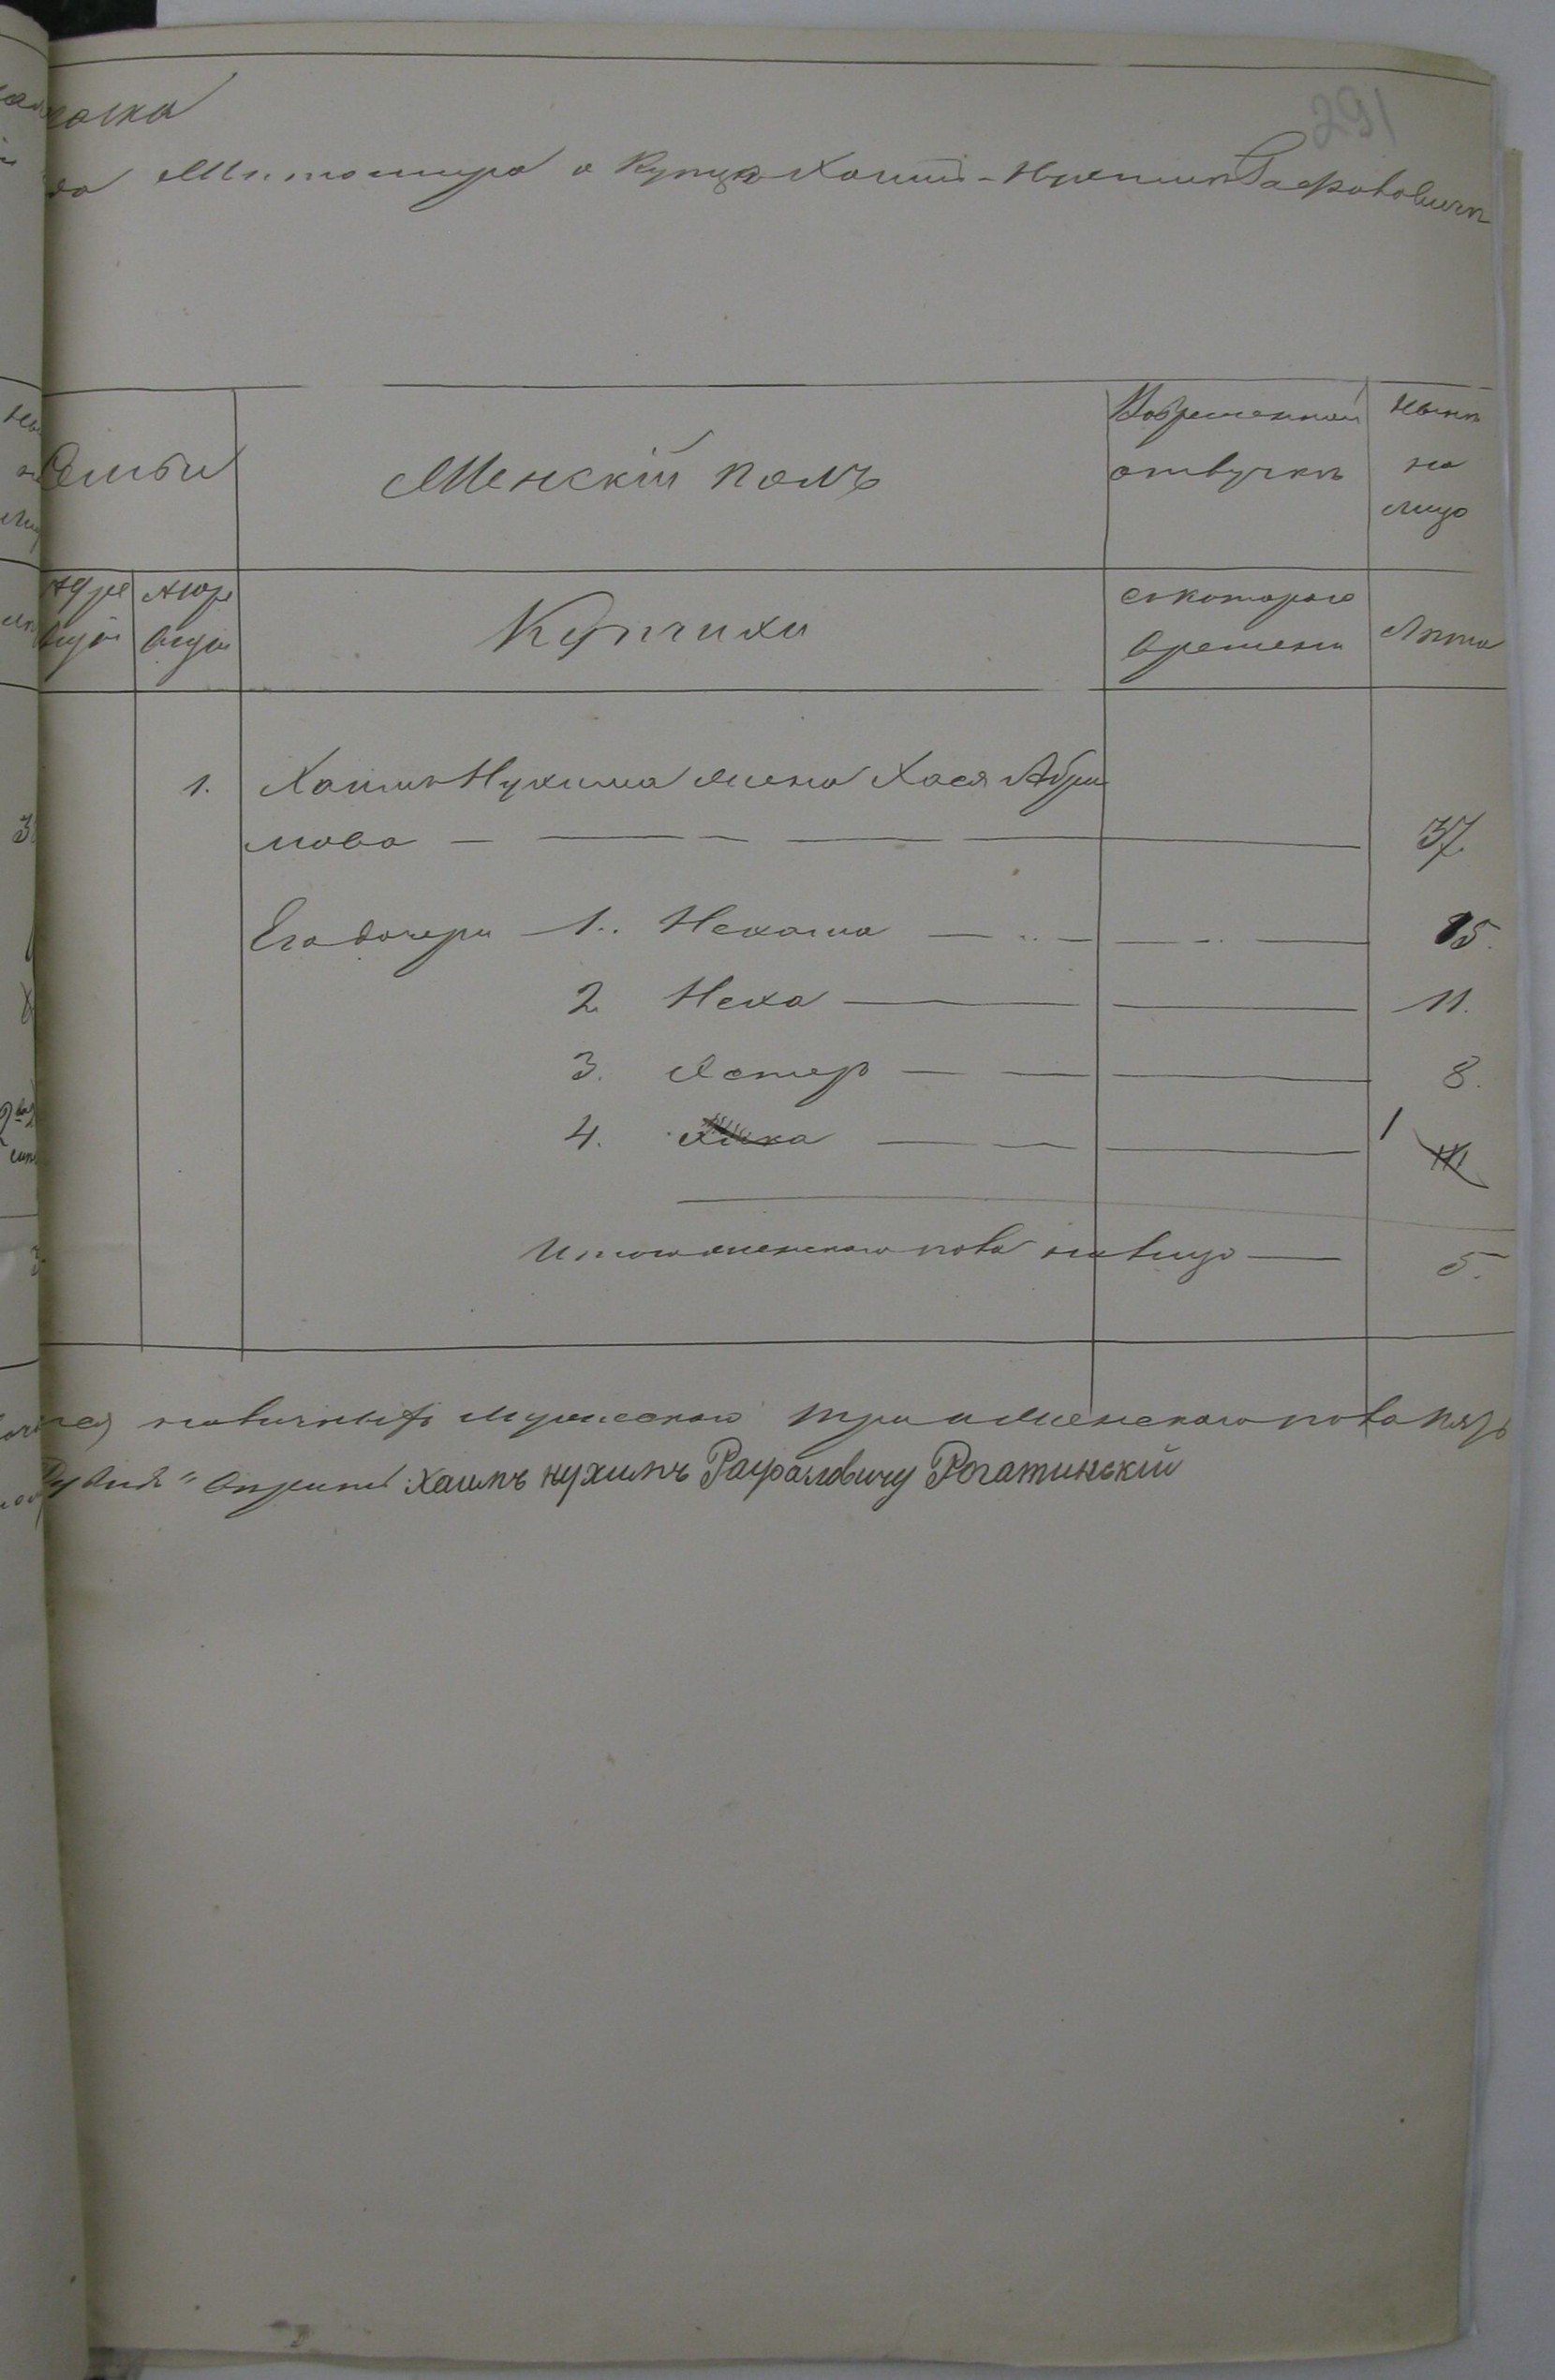 291
Житомира о Купце Хаимъ-Нухимъ Рафаловиче
Семьи
Женскій полъ
Вовременной отлучкѣ
Нынѣ на лицо
Купчихи
съ котораго времени
Лѣта
1. Хаимъ Нухима жена Хася Абра
мова — — — — 37.
Его дочери 1. Нехама — — 15.
2. Неха — — 11.
3. Эстер — — 8.
4. — — 1
Итого женскаго пола на лицо — 5.
наличныхъ мужескаго три и женскаго пола пять
Хаимъ нухимъ Рафаловичу Рогатинскій